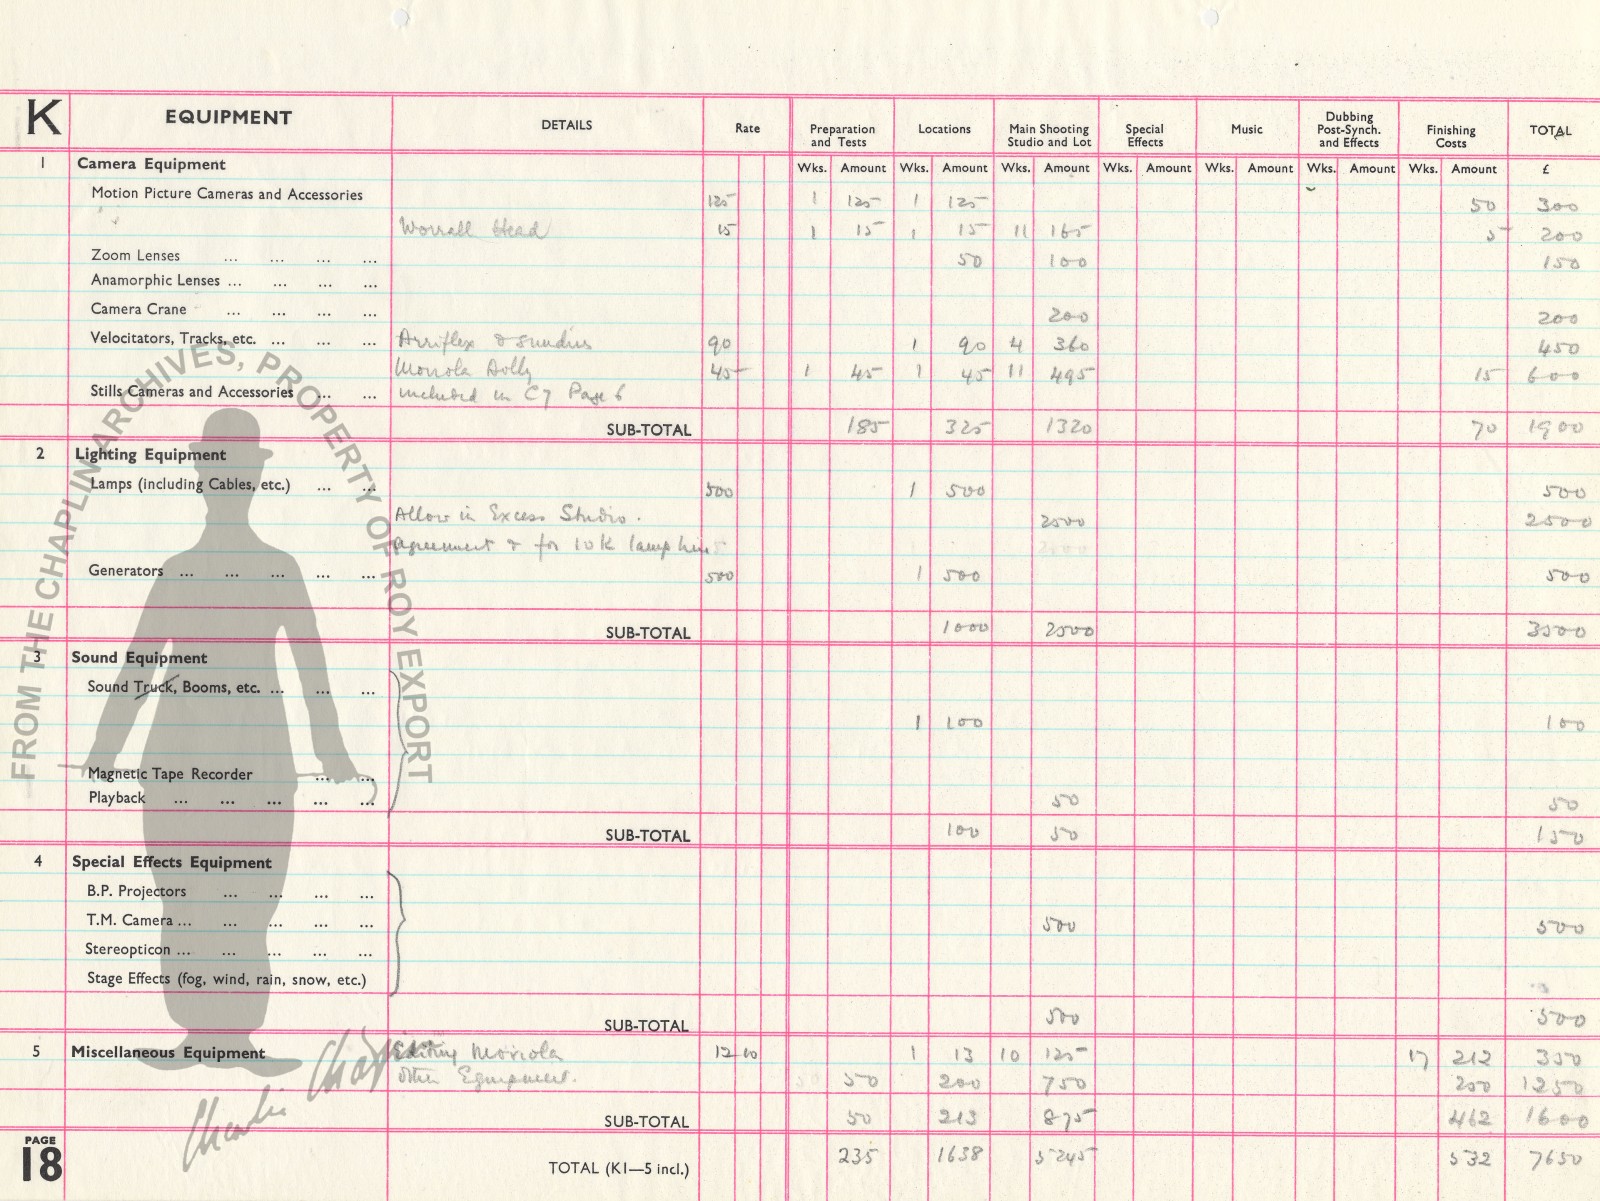 K EQUIPMENT DETAILS Rate Preparation and Tests Locations Main Shooting Studio and Lot Special Effects Music Dubbing Post-Synch. and Effects Finishing Costs TOTAL
1 Camera Equipment Wks. Amount Wks. Amount Wks. Amount Wks. Amount Wks. Amount Wks. Amount Wks. Amount £
Motion Picture Cameras and Accessories 125 1 125 1 125 50 300
Worrall Head 15 1 15 1 15 11 165 5 200
Zoom Lenses ... ... ... ... 50 100 150
Anamorphic Lenses ... ... ... ...
Camera Crane ... ... ... ... 200 200
Velocitators, Tracks, etc. ... ... ... Arriflex & 90 1 90 4 360 450
Dolly 45 1 45 1 45 11 495 15 600
Stills Cameras and Accessories ... ... included in C7 Page 6
SUB-TOTAL 185 325 1320 70 1900
2 Lighting Equipment
Lamps (including Cables, etc.) ... ... 500 1 500 500
Allow in Excess Studio. 2500 2500
Agreement & for 10K lamp hire
Generators ... ... ... ... ... 500 1 500 500
SUB-TOTAL 1000 2500 3500
3 Sound Equipment
Sound Truck, Booms, etc. ... ... ...
1 100 100
Magnetic Tape Recorder ... ...
Playback ... ... ... ... ... 50 50
SUB-TOTAL 100 50 150
4 Special Effects Equipment
B.P. Projectors ... ... ... ...
T.M. Camera ... ... ... ... ... 500 500
Stereopticon ... ... ... ... ...
Stage Effects (fog, wind, rain, snow, etc.)
SUB-TOTAL 500 500
5 Miscellaneous Equipment Editing Moviola 12 10 1 13 10 125 17 212 350
Other Equipment. 50 200 750 250 1250
SUB-TOTAL 50 213 875 462 1600
PAGE 18 TOTAL (K1—5 incl.) 235 1638 5245 532 7650
FROM THE CHAPLIN ARCHIVES, PROPERTY OF ROY EXPORT
Charlie Chaplin